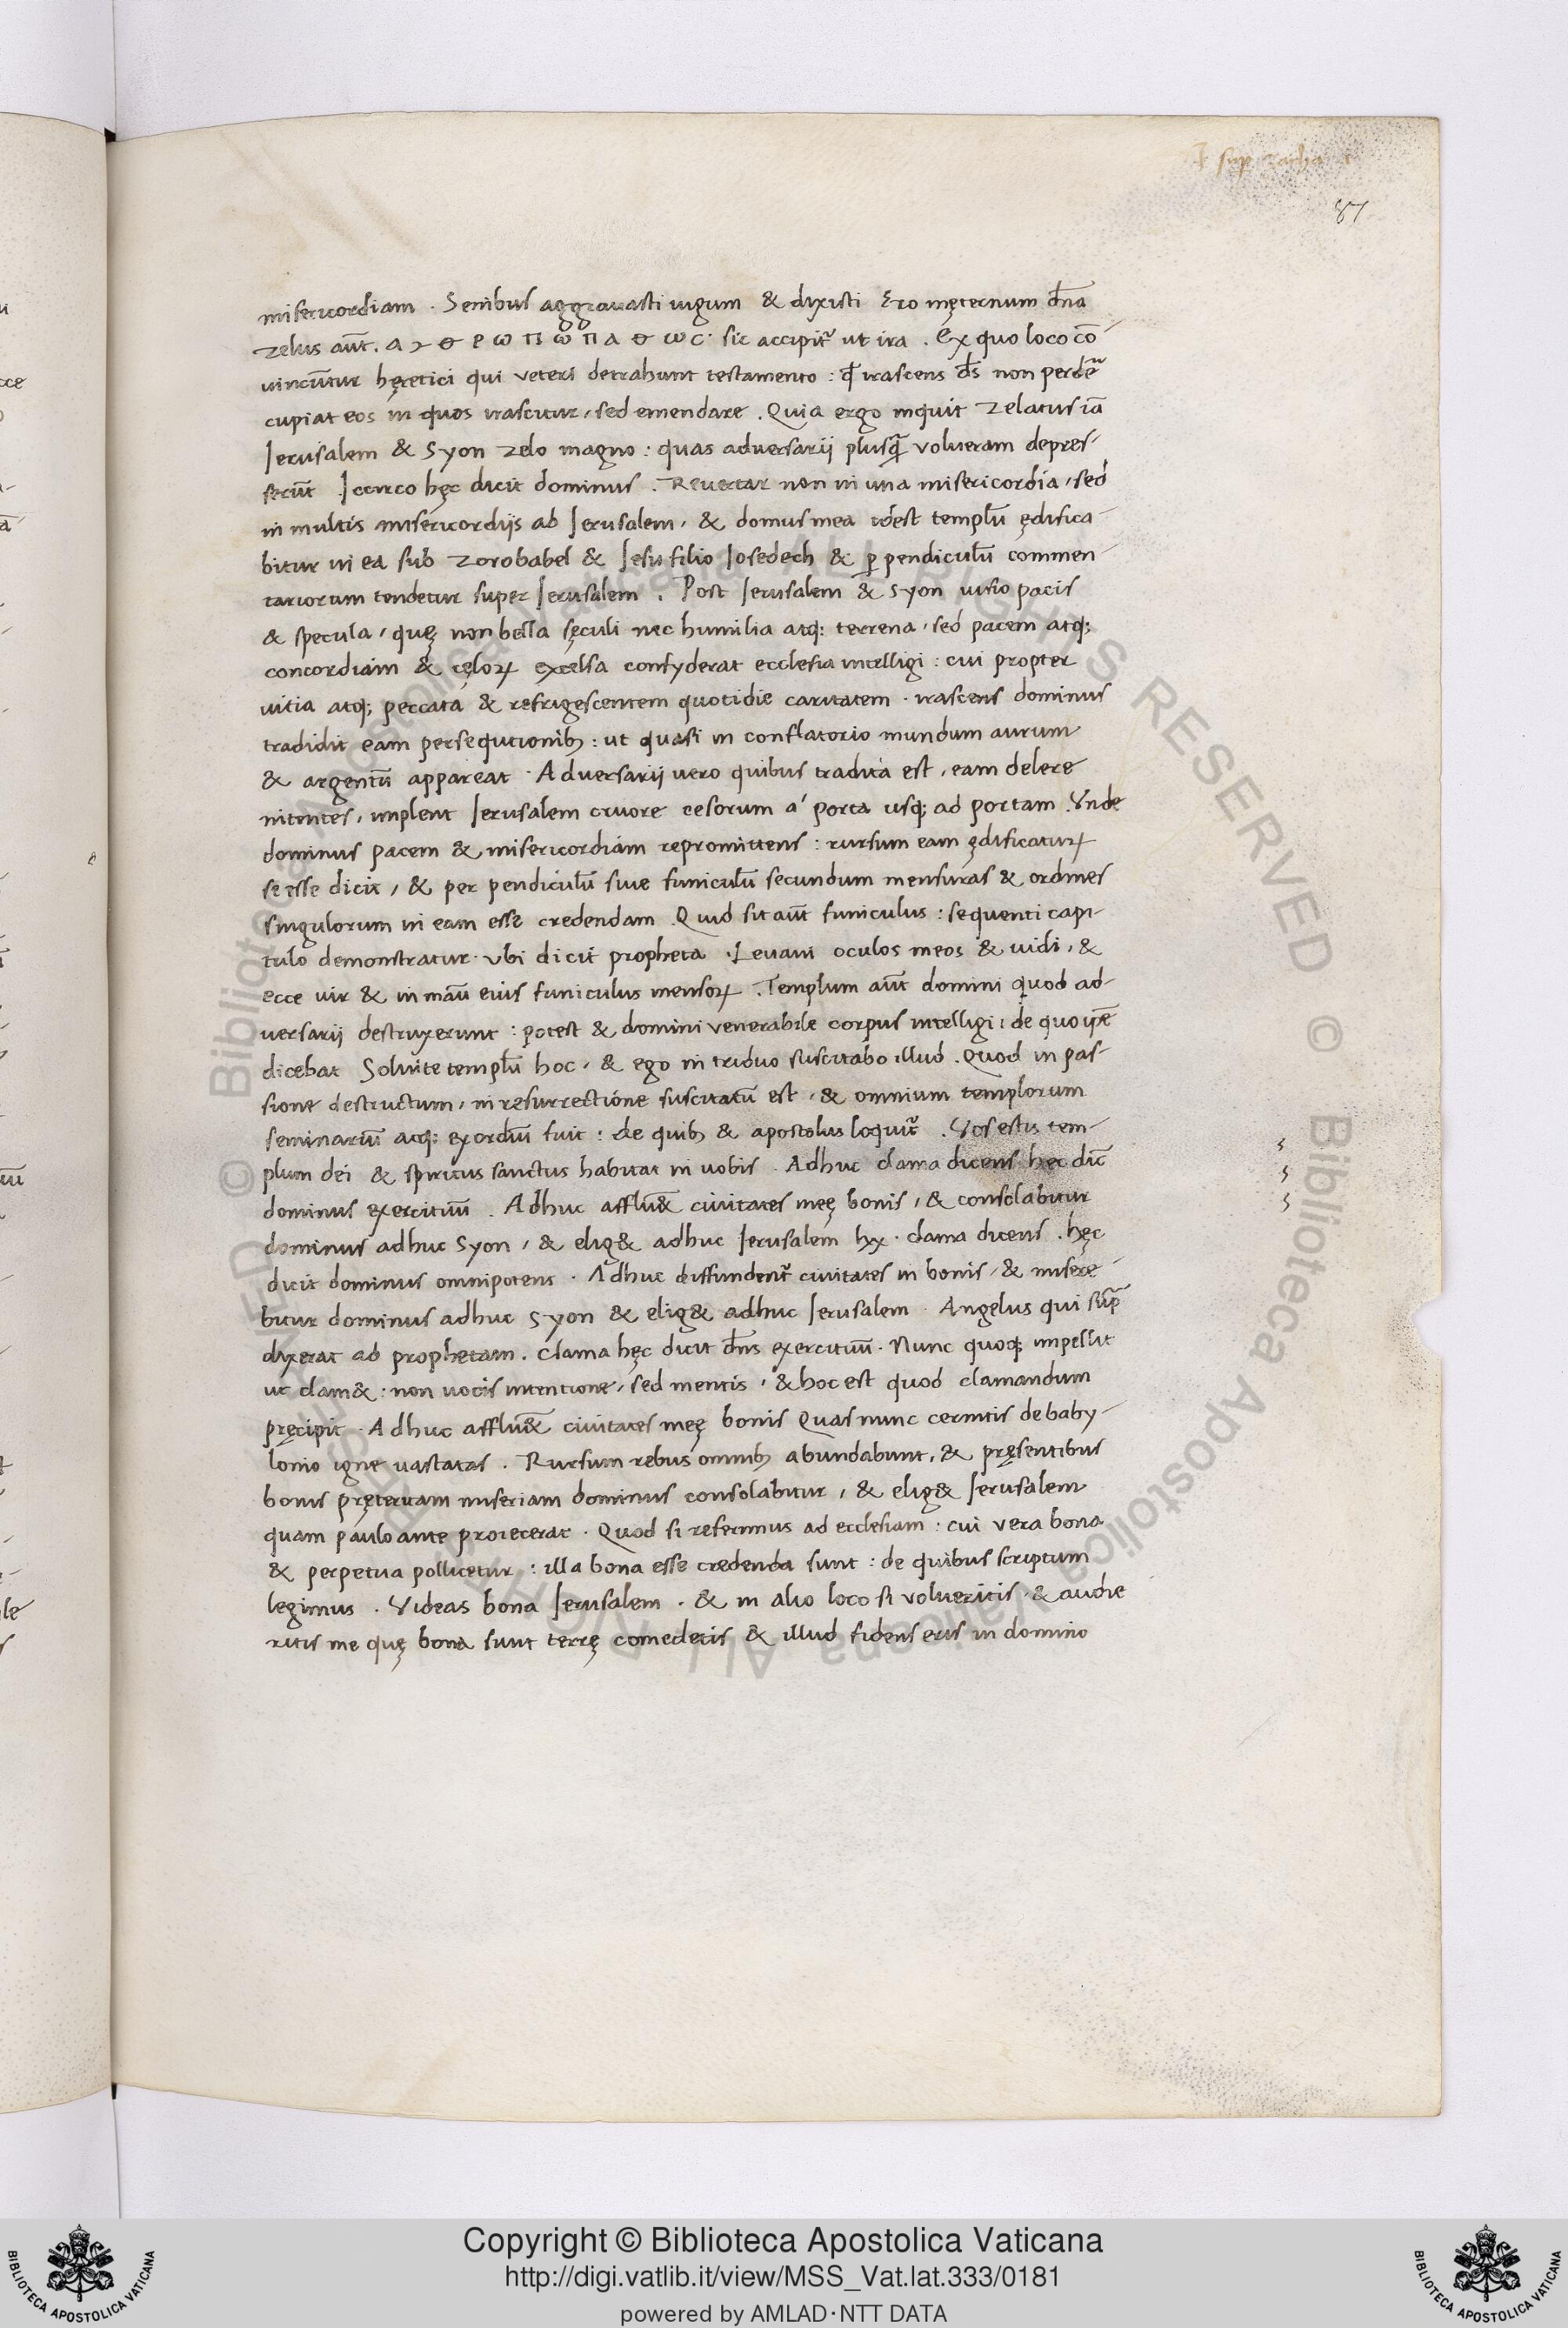 I sup zacha
87
misericordiam . Senibus aggravasti iugum & dixisti Ero inęternum dn̄a
zelus aūt . α ν θ ρ ω π ω π α θ ω c · sic accipit᷑ ut ira . Ex quo loco cō
uincūtur hęretici qui veteri detrahunt testamento : qđ irascens ds̄ non perdē
cupiat eos in quos irascitur , sed emendare . Quia ergo inquit zelatus iā
Jerusalem & Syon zelo magno : quas adversarij plusq̄ volueram depres-
serūt Iccirco hęc dicit dominus . Revertar non in una misericordia , sed
in multis misericordijs ab Jerusalem , & domus mea idest templū ędifica-
bitur in ea sub Zorobabel & Jesu filio Josedech & ꝑ pendiculū commen-
tariorum tendetur super Jerusalem . Post Jerusalem & Syon uisio pacis
& specula , quę non bella sęculi nec humilia atq; terrena , sed pacem atq;
concordiam & cęloꝝ excelsa consyderat ecclesia intelligi : cui propter
uitia atq; peccata & refrigescentem quotidie caritatem · irascens dominus
tradidit eam persequtionib; : ut quasi in conflatorio mundum aurum
& argentū appareat · Adversarij uero quibus tradita est , eam delere
nitentes , implent Jerusalem cruore cesorum a' porta usq; ad portam . Vnde
dominus pacem & misericordiam repromittens : rursum eam ędificaturꝝ
se esse dicit , & per pendiculū siue funiculū secundum mensuras & ordines
singulorum in eam esse credendam . Quid sit aūt funiculus : sequenti capi-
tulo demonstratur · vbi dicit propheta . Levavi oculos meos & uidi , &
ecce vir & in manū eius funiculus mensoꝝ . Templum aūt domini quod ad-
versarij destruxerunt : potest & domini venerabile corpus intelligi : de quo ip̄e
dicebat Soluite templū hoc , & ego in triduo suscitabo illud . Quod in pas-
sione destructum , in resurrectione suscitatū est , & omnium templorum
seminariū atq; exordiū fuit : de quib; & apostolus loquit᷑ . Vos estis tem-
plum dei & spiritus sanctus habitat in uobis . Adhuc clama dicens hęc dic̄
dominus exercituū . Adhuc afflū& civitates męę bonis , & consolabitur
dominus adhuc Syon , & elig& adhuc Jerusalem lxx · clama dicens . hęc
dicit dominus omnipotens . Adhuc diffundent᷑ civitates in bonis , & misere-
bitur dominus adhuc Syon & elig& adhuc Jerusalem . Angelus qui sup̄
dixerat ad prophetam . Clama hęc dicit dn̄s exercituū . Nunc quoq; impellit
ut clam& : non uocis intentione , sed mentis , & hoc est quod clamandum
pręcipit . Adhuc afflū& civitates meę bonis Quas nunc cernitis de baby-
lonio igne uastatas . Rursum rebus omnib; abundabunt , & pręsentibus
bonis pręteritam miseriam dominus consolabitur , & elig& Jerusalem
quam paulo ante proiecerat . Quod si referimus ad ecclesiam : cui vera bona
& perpetua pollicetur : illa bona esse credenda sunt : de quibus scriptum
legimus . Videas bona Jerusalem . & in alio loco si volueritis , & audie
ritis me quę bona sunt terrę comedetis & illud fidens eris in domino
© Biblioteca Apostolica Vaticana ALL RIGHTS RESERVED
Copyright © Biblioteca Apostolica Vaticana
http://digi.vatlib.it/view/MSS_Vat.lat.333/0181
powered by AMLAD·NTT DATA
BIBLIOTECA APOSTOLICA VATICANA
BIBLIOTECA APOSTOLICA VATICANA